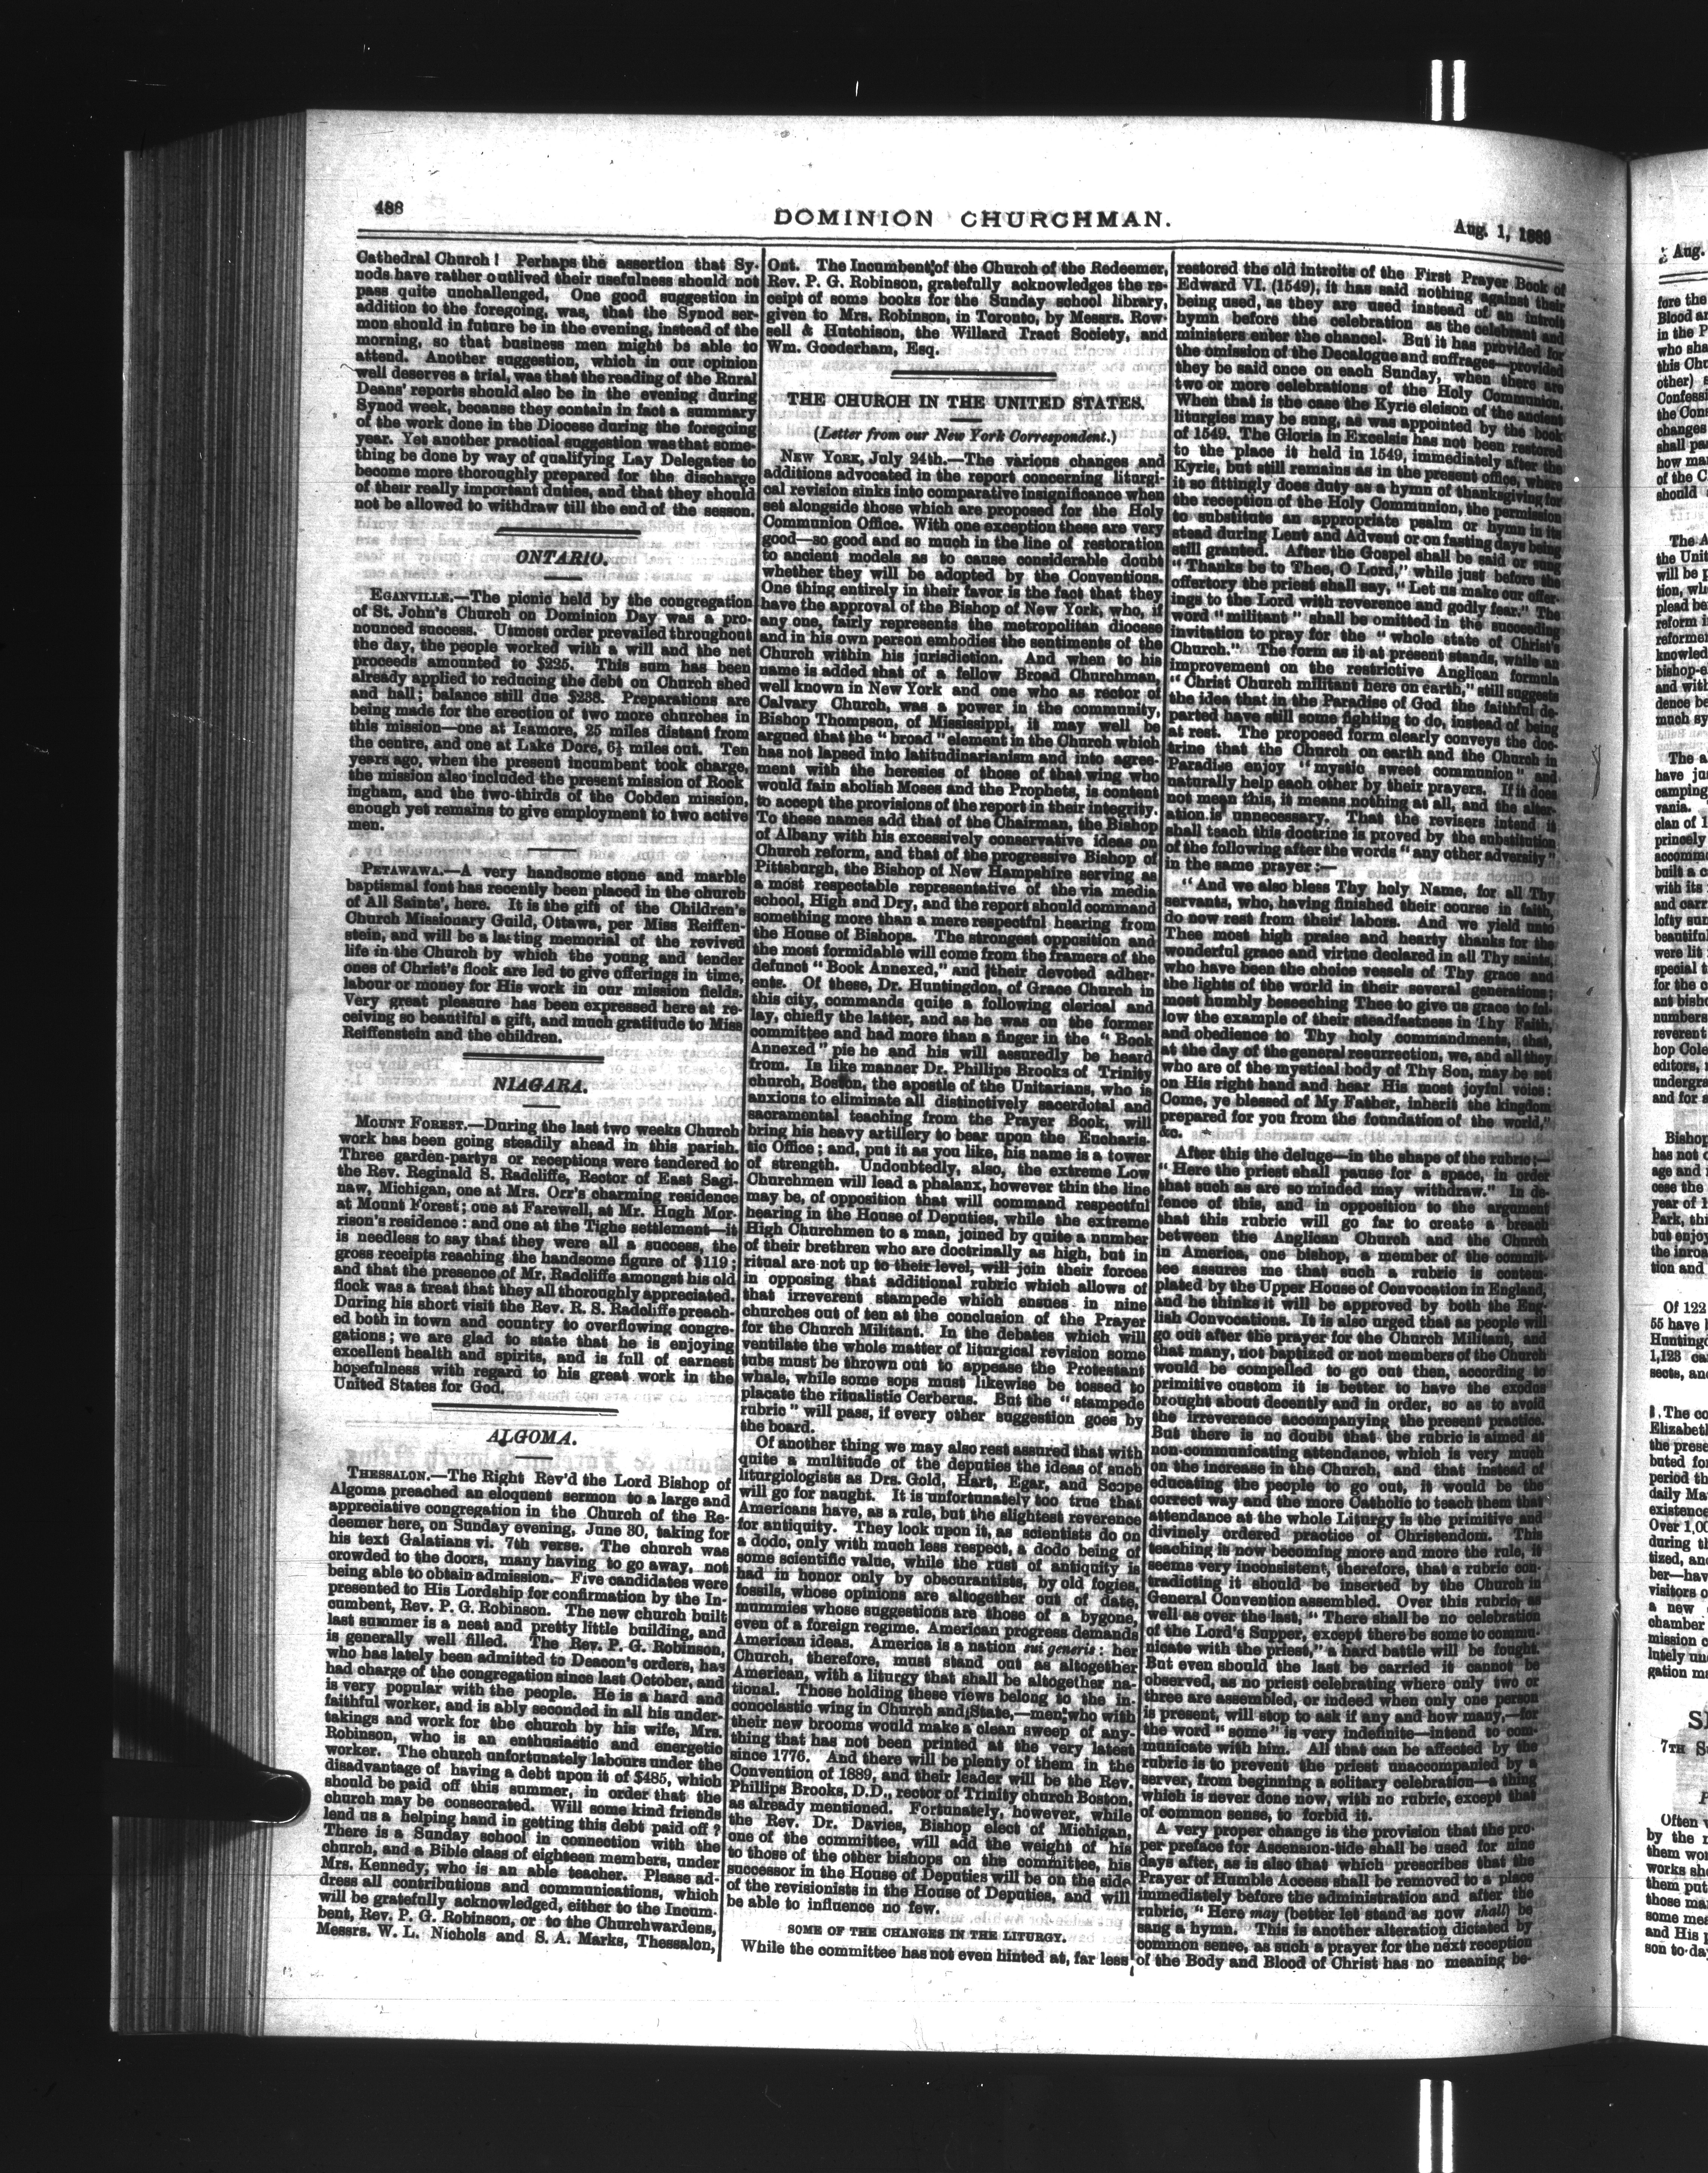 488
DOMINION CHURCHMAN.
Aug. 1, 1889
Cathedral Church! Perhaps the assertion that Sy-
nods have rather outlived their usefulness should not
pass quite unchallenged. One good suggestion in
addition to the foregoing, was, that the Synod ser-
mon should in future be in the evening, instead of the
morning, so that business men might be able to
attend. Another suggestion, which in our opinion
well deserves a trial, was that the reading of the Rural
Deans' reports should also be in the evening during
Synod week, because they contain in fact a summary
of the work done in the Diocese during the foregoing
year. Yet another practical suggestion was that some-
thing be done by way of qualifying Lay Delegates to
become more thoroughly prepared for the discharge
of their really important duties, and that they should
not be allowed to withdraw till the end of the sesson.
ONTARIO.
EGANVILLE.—The picnic held by the congregation
of St. John's Church on Dominion Day was a pro-
nounced success. Utmost order prevailed throughout
the day, the people worked with a will and the net
proceeds amounted to $225. This sum has been
already applied to reducing the debt on Church shed
and hall; balance still due $288. Preparations are
being made for the erection of two more churches in
this mission—one at Isamore, 25 miles distant from
the centre, and one at Lake Dore, 6½ miles out. Ten
years ago, when the present incumbent took charge,
the mission also included the present mission of Rock
ingham, and the two-thirds of the Cobden mission,
enough yet remains to give employment to two active
men.
PETAWAWA.—A very handsome stone and marble
baptismal font has recently been placed in the church
of All Saints', here. It is the gift of the Children's
Church Missionary Guild, Ottawa, per Miss Reiffen-
stein, and will be a lasting memorial of the revived
life in the Church by which the young and tender
ones of Christ's flock are led to give offerings in time,
labour or money for His work in our mission fields.
Very great pleasure has been expressed here at re-
ceiving so beautiful a gift, and much gratitude to Miss
Reiffenstein and the children.
NIAGARA.
MOUNT FOREST.—During the last two weeks Church
work has been going steadily ahead in this parish.
Three garden-partys or receptions were tendered to
the Rev. Reginald S. Radcliffe, Rector of East Sagi-
naw, Michigan, one at Mrs. Orr's charming residence
at Mount Forest; one at Farewell, at Mr. Hugh Mor-
rison's residence: and one at the Tighe settlement—it
is needless to say that they were all a success, the
gross receipts reaching the handsome figure of $119;
and that the presence of Mr. Radcliffe amongst his old
flock was a treat that they all thoroughly appreciated.
During his short visit the Rev. R. S. Radcliffe preach-
ed both in town and country to overflowing congre-
gations; we are glad to state that he is enjoying
excellent health and spirits, and is full of earnest
hopefulness with regard to his great work in the
United States for God.
ALGOMA.
THESSALON.—The Right Rev'd the Lord Bishop of
Algoma preached an eloquent sermon to a large and
appreciative congregation in the Church of the Re-
deemer here, on Sunday evening, June 30, taking for
his text Galatians vi. 7th verse. The church was
crowded to the doors, many having to go away, not
being able to obtain admission. Five candidates were
presented to His Lordship for confirmation by the In-
cumbent, Rev. P. G. Robinson. The new church built
last summer is a neat and pretty little building, and
is generally well filled. The Rev. P. G. Robinson,
who has lately been admitted to Deacon's orders, has
had charge of the congregation since last October, and
is very popular with the people. He is a hard and
faithful worker, and is ably seconded in all his under-
takings and work for the church by his wife, Mrs.
Robinson, who is an enthusiastic and energetic
worker. The church unfortunately labours under the
disadvantage of having a debt upon it of $485, which
should be paid off this summer, in order that the
church may be consecrated. Will some kind friends
lend us a helping hand in getting this debt paid off?
There is a Sunday school in connection with the
church, and a Bible class of eighteen members, under
Mrs. Kennedy, who is an able teacher. Please ad-
dress all contributions and communications, which
will be gratefully acknowledged, either to the Incum-
bent, Rev. P. G. Robinson, or to the Churchwardens,
Messrs. W. L. Nichols and S. A. Marks, Thessalon,
Ont. The Incumbent of the Church of the Redeemer,
Rev. P. G. Robinson, gratefully acknowledges the re-
ceipt of some books for the Sunday school library,
given to Mrs. Robinson, in Toronto, by Messrs. Row-
sell & Hutchison, the Willard Tract Society, and
Wm. Gooderham, Esq.
THE CHURCH IN THE UNITED STATES.
(Letter from our New York Correspondent.)
NEW YORK, July 24th.—The various changes and
additions advocated in the report concerning liturgi-
cal revision sinks into comparative insignificance when
set alongside those which are proposed for the Holy
Communion Office. With one exception these are very
good—so good and so much in the line of restoration
to ancient models as to cause considerable doubt
whether they will be adopted by the Conventions.
One thing entirely in their favor is the fact that they
have the approval of the Bishop of New York, who, if
any one, fairly represents the metropolitan diocese
and in his own person embodies the sentiments of the
Church within his jurisdiction. And when to his
name is added that of a fellow Broad Churchman,
well known in New York and one who as rector of
Calvary Church, was a power in the community,
Bishop Thompson, of Mississippi, it may well be
argued that the "broad" element in the Church which
has not lapsed into latitudinarianism and into agree-
ment with the heresies of those of that wing who
would fain abolish Moses and the Prophets, is content
to accept the provisions of the report in their integrity.
To these names add that of the Chairman, the Bishop
of Albany with his excessively conservative ideas on
Church reform, and that of the progressive Bishop of
Pittsburgh, the Bishop of New Hampshire serving as
a most respectable representative of the via media
school, High and Dry, and the report should command
something more than a mere respectful hearing from
the House of Bishops. The strongest opposition and
the most formidable will come from the framers of the
defunct "Book Annexed," and their devoted adher-
ents. Of these, Dr. Huntingdon, of Grace Church in
this city, commands quite a following clerical and
lay, chiefly the latter, and as he was on the former
committee and had more than a finger in the "Book
Annexed" pie he and his will assuredly be heard
from. In like manner Dr. Phillips Brooks of Trinity
church, Boston, the apostle of the Unitarians, who is
anxious to eliminate all distinctively sacerdotal and
sacramental teaching from the Prayer Book, will
bring his heavy artillery to bear upon the Eucharis-
tic Office; and, put it as you like, his name is a tower
of strength. Undoubtedly, also, the extreme Low
Churchmen will lead a phalanx, however thin the line
may be, of opposition that will command respectful
hearing in the House of Deputies, while the extreme
High Churchmen to a man, joined by quite a number
of their brethren who are doctrinally as high, but in
ritual are not up to their level, will join their forces
in opposing that additional rubric which allows of
that irreverent stampede which ensues in nine
churches out of ten at the conclusion of the Prayer
for the Church Militant. In the debates which will
ventilate the whole matter of liturgical revision some
tubs must be thrown out to appease the Protestant
whale, while some sops must likewise be tossed to
placate the ritualistic Cerberus. But the "stampede
rubric" will pass, if every other suggestion goes by
the board.
Of another thing we may also rest assured that with
quite a multitude of the deputies the ideas of such
liturgiologists as Drs. Gold, Hart, Egar, and Scope
will go for naught. It is unfortunately too true that
Americans have, as a rule, but the slightest reverence
for antiquity. They look upon it, as scientists do on
a dodo, only with much less respect, a dodo being of
some scientific value, while the rust of antiquity is
had in honor only by obscurantists, by old fogies,
fossils, whose opinions are altogether out of date,
mummies whose suggestions are those of a bygone,
even of a foreign regime. American progress demands
American ideas. America is a nation sui generis: her
Church, therefore, must stand out as altogether
American, with a liturgy that shall be altogether na-
tional. Those holding these views belong to the in-
conoclastic wing in Church and State,—men who with
their new brooms would make a clean sweep of any-
thing that has not been printed at the very latest
since 1776. And there will be plenty of them in the
Convention of 1889, and their leader will be the Rev.
Phillips Brooks, D.D., rector of Trinity church Boston,
as already mentioned. Fortunately, however, while
the Rev. Dr. Davies, Bishop elect of Michigan,
one of the committee, will add the weight of his
to those of the other bishops on the committee, his
successor in the House of Deputies will be on the side
of the revisionists in the House of Deputies, and will
be able to influence no few.
SOME OF THE CHANGES IN THE LITURGY.
While the committee has not even hinted at, far less
restored the old introits of the First Prayer Book of
Edward VI. (1549), it has said nothing against their
being used, as they are used instead of an introit
hymn before the celebration as the celebrant and
ministers enter the chancel. But it has provided for
the omission of the Decalogue and suffrages—provided
they be said once on each Sunday, when there are
two or more celebrations of the Holy Communion.
When that is the case the Kyrie eleison of the ancient
liturgies may be sung, as was appointed by the book
of 1549. The Gloria in Excelsis has not been restored
to the place it held in 1549, immediately after the
Kyrie, but still remains as in the present office, where
it so fittingly does duty as a hymn of thanksgiving for
the reception of the Holy Communion, the permission
to substitute an appropriate psalm or hymn in its
stead during Lent and Advent or on fasting days being
still granted. After the Gospel shall be said or sung
"Thanks be to Thee, O Lord," while just before the
offertory the priest shall say, "Let us make our offer-
ings to the Lord with reverence and godly fear." The
word "militant" shall be omitted in the succeeding
invitation to pray for the "whole state of Christ's
Church." The form as it at present stands, while an
improvement on the restrictive Anglican formula
"Christ Church militant here on earth," still suggests
the idea that in the Paradise of God the faithful de-
parted have still some fighting to do, instead of being
at rest. The proposed form clearly conveys the doc-
trine that the Church on earth and the Church in
Paradise enjoy "mystic sweet communion" and
naturally help each other by their prayers. If it does
not mean this, it means nothing at all, and the alter-
ation is unnecessary. That the revisers intend it
shall teach this doctrine is proved by the substitution
of the following after the words "any other adversity"
in the same prayer:—
"And we also bless Thy holy Name, for all Thy
servants, who, having finished their course in faith,
do now rest from their labors. And we yield unto
Thee most high praise and hearty thanks for the
wonderful grace and virtue declared in all Thy saints,
who have been the choice vessels of Thy grace and
the lights of the world in their several generations;
most humbly beseeching Thee to give us grace to fol-
low the example of their steadfastness in Thy Faith,
and obedience to Thy holy commandments, that,
at the day of the general resurrection, we, and all they
who are of the mystical body of Thy Son, may be set
on His right hand and hear His most joyful voice:
Come, ye blessed of My Father, inherit the kingdom
prepared for you from the foundation of the world,"
&c.
After this the deluge—in the shape of the rubric:—
"Here the priest shall pause for a space, in order
that such as are so minded may withdraw." In de-
fence of this, and in opposition to the argument
that this rubric will go far to create a breach
between the Anglican Church and the Church
in America, one bishop, a member of the commit-
tee assures me that such a rubric is contem-
plated by the Upper House of Convocation in England,
and he thinks it will be approved by both the Eng-
lish Convocations. It is also urged that as people will
go out after the prayer for the Church Militant, and
that many, not baptized or not members of the Church
would be compelled to go out then, according to
primitive custom it is better to have the exodus
brought about decently and in order, so as to avoid
the irreverence accompanying the present practice.
But there is no doubt that the rubric is aimed at
non-communicating attendance, which is very much
on the increase in the Church, and that instead of
educating the people to go out, it would be the
correct way and the more Catholic to teach them that
attendance at the whole Liturgy is the primitive and
divinely ordered practice of Christendom. This
teaching is now becoming more and more the rule, it
seems very inconsistent, therefore, that a rubric con-
tradicting it should be inserted by the Church in
General Convention assembled. Over this rubric, as
well as over the last, "There shall be no celebration
of the Lord's Supper, except there be some to commu-
nicate with the priest," a hard battle will be fought.
But even should the last be carried it cannot be
observed, as no priest celebrating where only two or
three are assembled, or indeed when only one person
is present, will stop to ask if any and how many,—for
the word "some" is very indefinite—intend to com-
municate with him. All that can be affected by the
rubric is to prevent the priest unaccompanied by a
server, from beginning a solitary celebration—a thing
which is never done now, with no rubric, except that
of common sense, to forbid it.
A very proper change is the provision that the pro-
per preface for Ascension-tide shall be used for nine
days after, as is also that which prescribes that the
Prayer of Humble Access shall be removed to a place
immediately before the administration and after the
rubric, "Here may (better let stand as now shall) be
sang a hymn. This is another alteration dictated by
common sense, as such a prayer for the next reception
of the Body and Blood of Christ has no meaning be-